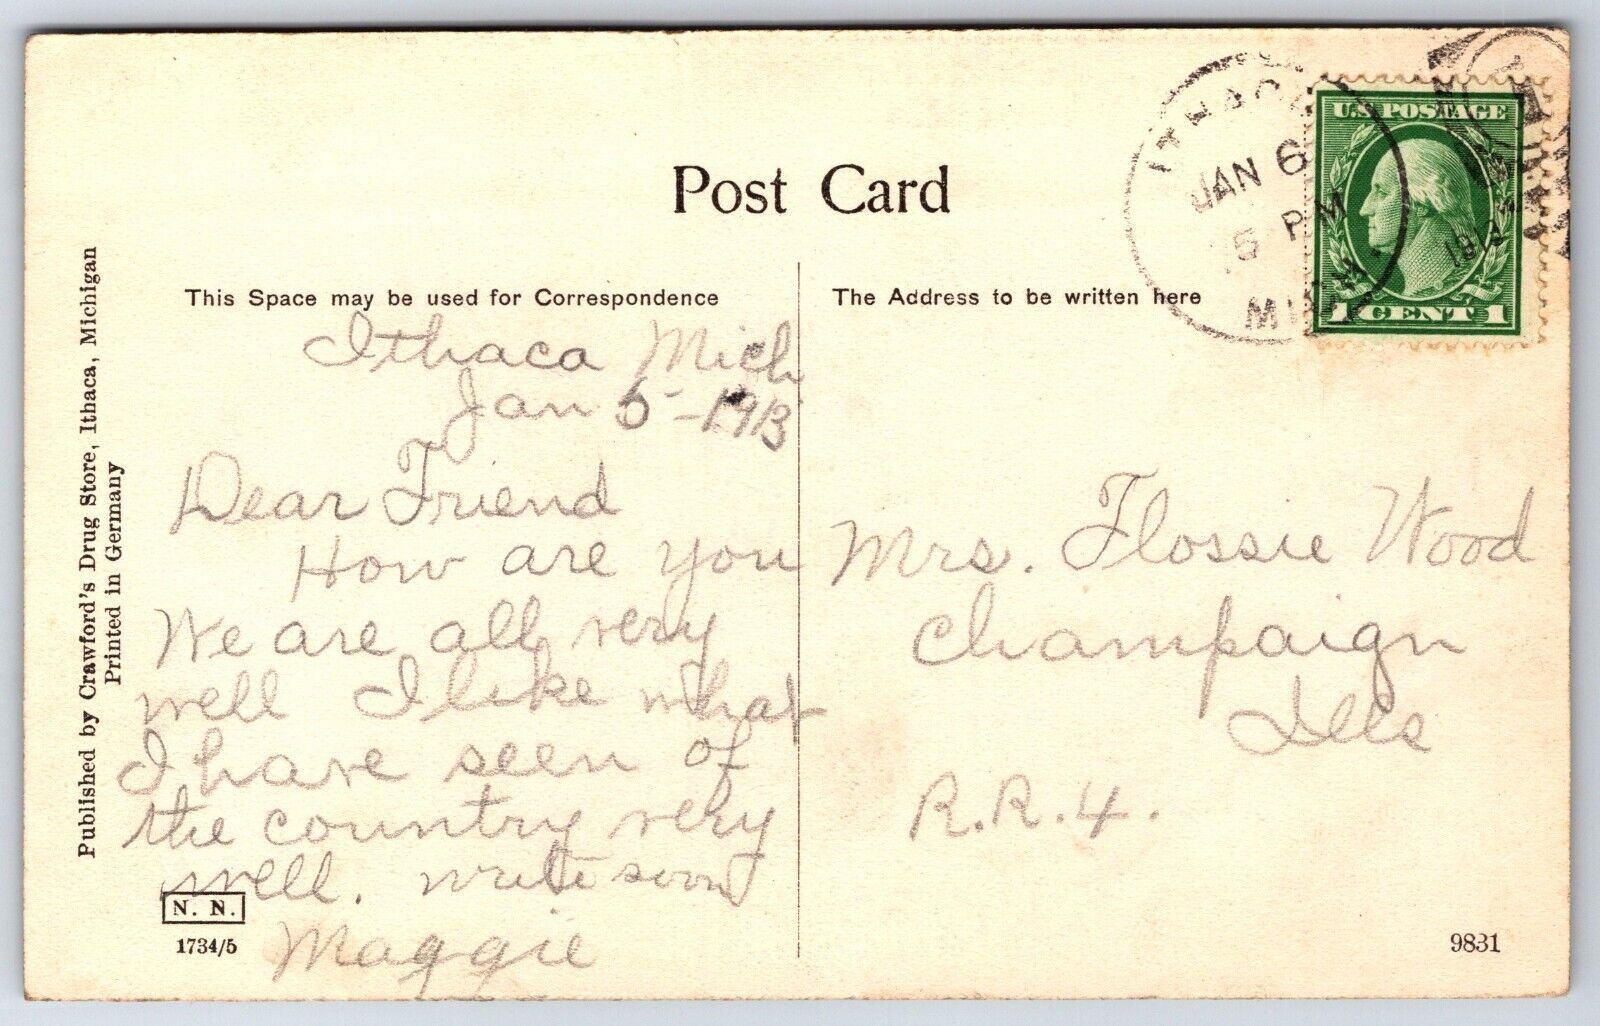 Post Card
This Space may be used for Correspondence
The Address to be written here
Published by Crawford's Drug Store, Ithaca, Michigan
Printed in Germany
ITHACA
JAN 6
5 PM
1913
MICH.
U.S. POSTAGE
1 CENT 1
Ithaca Mich
Jan 5-1913
Dear Friend
How are you
We are all very
well I like what
I have seen of
the country very
well. write soon
Maggie
Mrs. Flossie Wood
Champaign
Ills
R.R.4.
N. N.
1734/5
9831